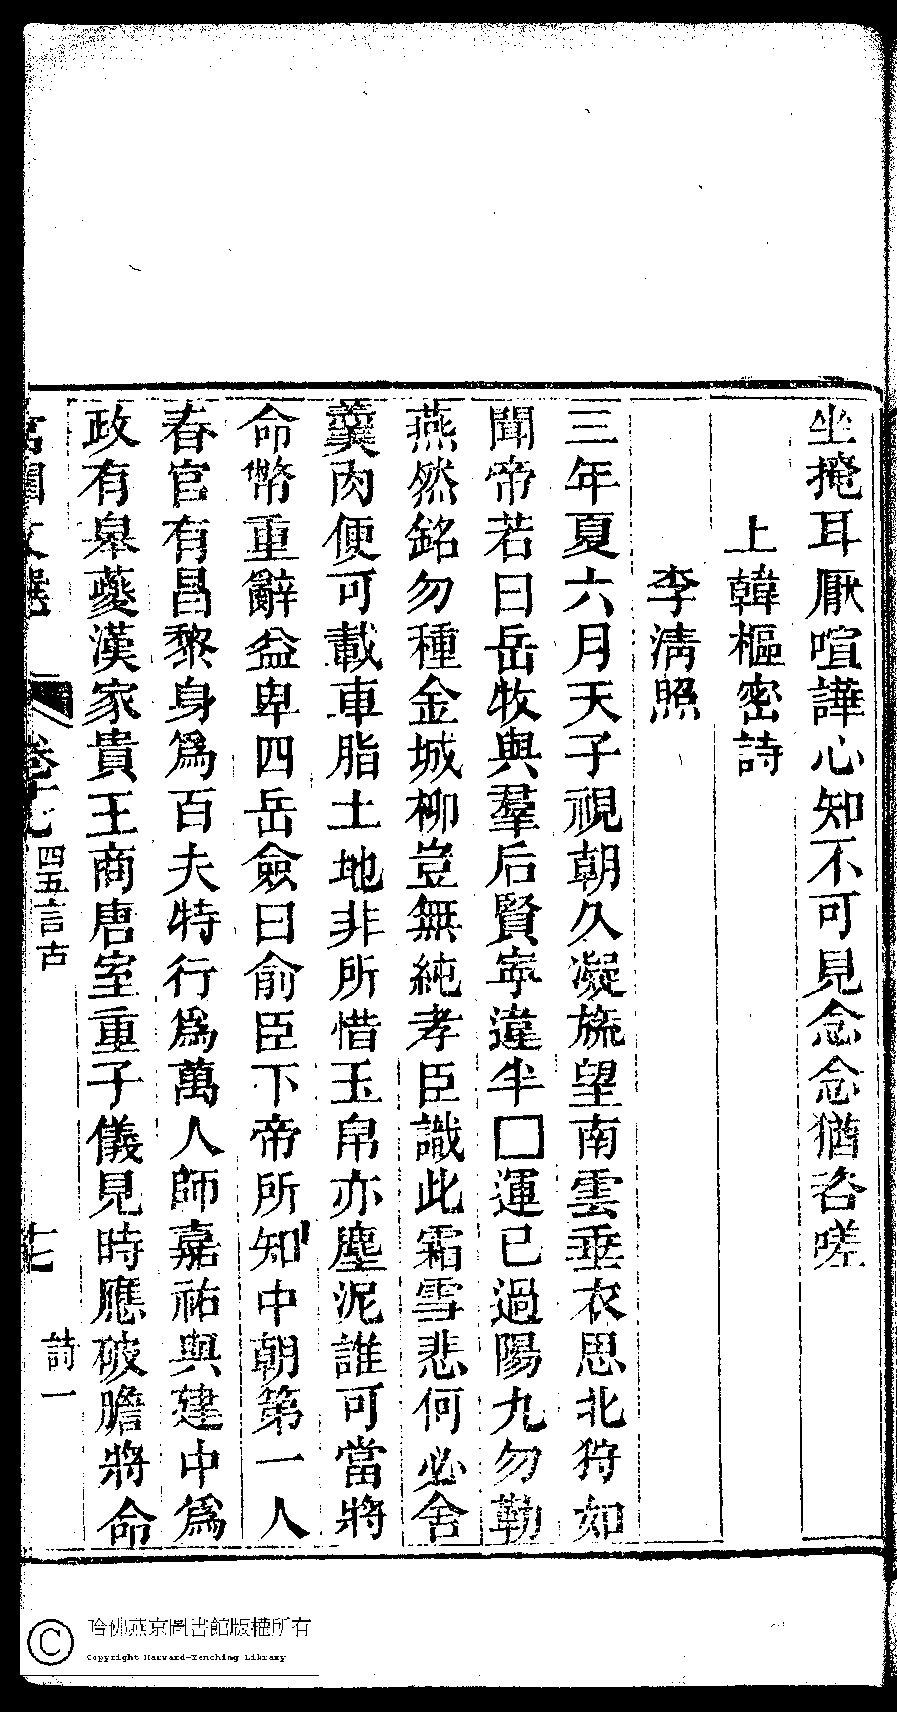 坐掩耳厭喧譁心知不可見念念猶呑嗟
上韓樞密詩
李淸照
三年夏六月天子視朝久凝旒望南雲垂衣思北狩如
聞帝若曰岳牧與羣后賢寧違半□運已過陽九勿勒
燕然銘勿種金城柳豈無純孝臣識此霜雪悲何必舍
羹肉便可載車脂土地非所惜玉帛亦塵泥誰可當將
命幣重辭益卑四岳僉曰俞臣下帝所知中朝第一人
春官有昌黎身爲百夫特行爲萬人師嘉祐與建中爲
政有皋夔漢家貴王商唐室重子儀見時應破膽將命
宮閨文選
卷十七
四五言古
十七
詩一
哈佛燕京圖書館版權所有
Copyright Harvard-Yenching Library